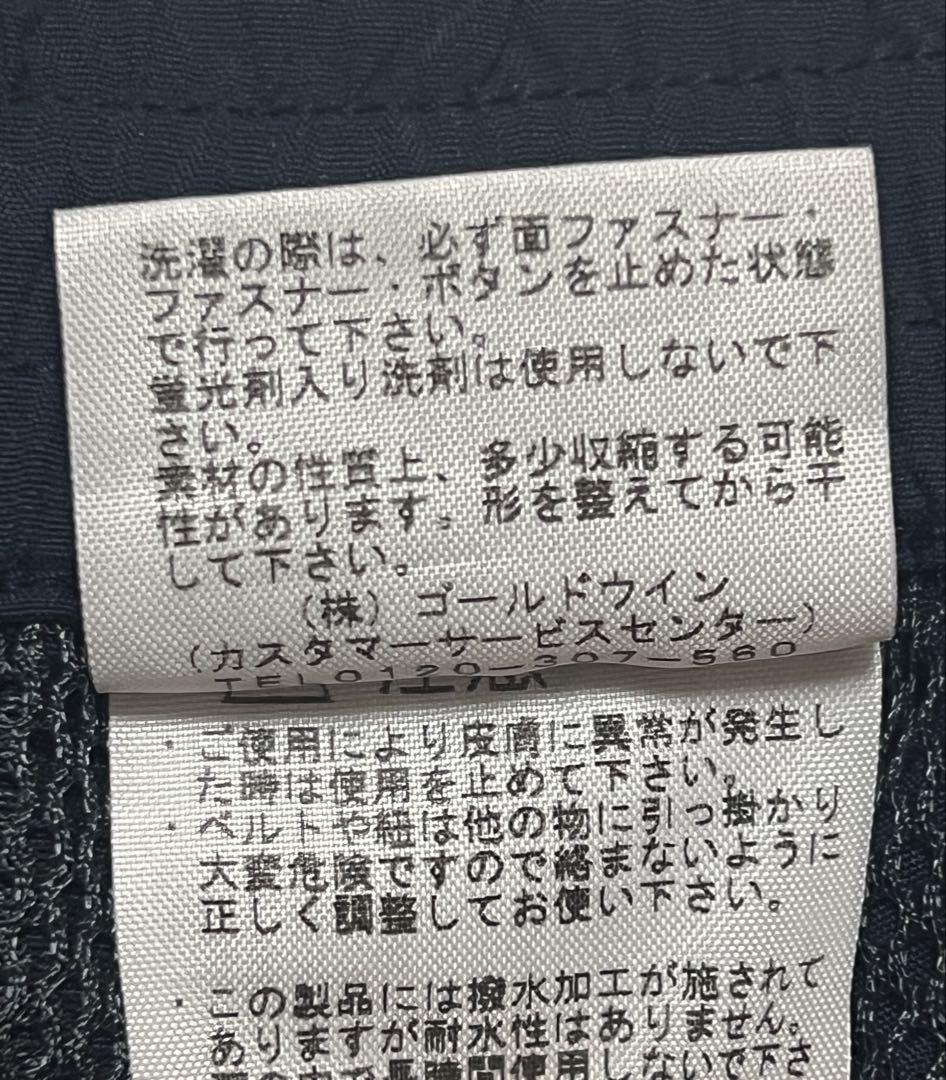 洗濯の際は、必ず面ファスナー・
ファスナー・ボタンを止めた状態
で行って下さい。
蛍光剤入り洗剤は使用しないで下
さい。
素材の性質上、多少収縮する可能
性があります。形を整えてから干
して下さい。
(株)ゴールドウイン
(カスタマーサービスセンター)
TEL0120-307-560
注意
・ご使用により皮膚に異常が発生し
た時は使用を止めて下さい。
・ベルトや紐は他の物に引っ掛かり
大変危険ですので絡まないように
正しく調整してお使い下さい。
・この製品には撥水加工が施されて
ありますが耐水性はありません。
の中で長時間使用しないで下さ